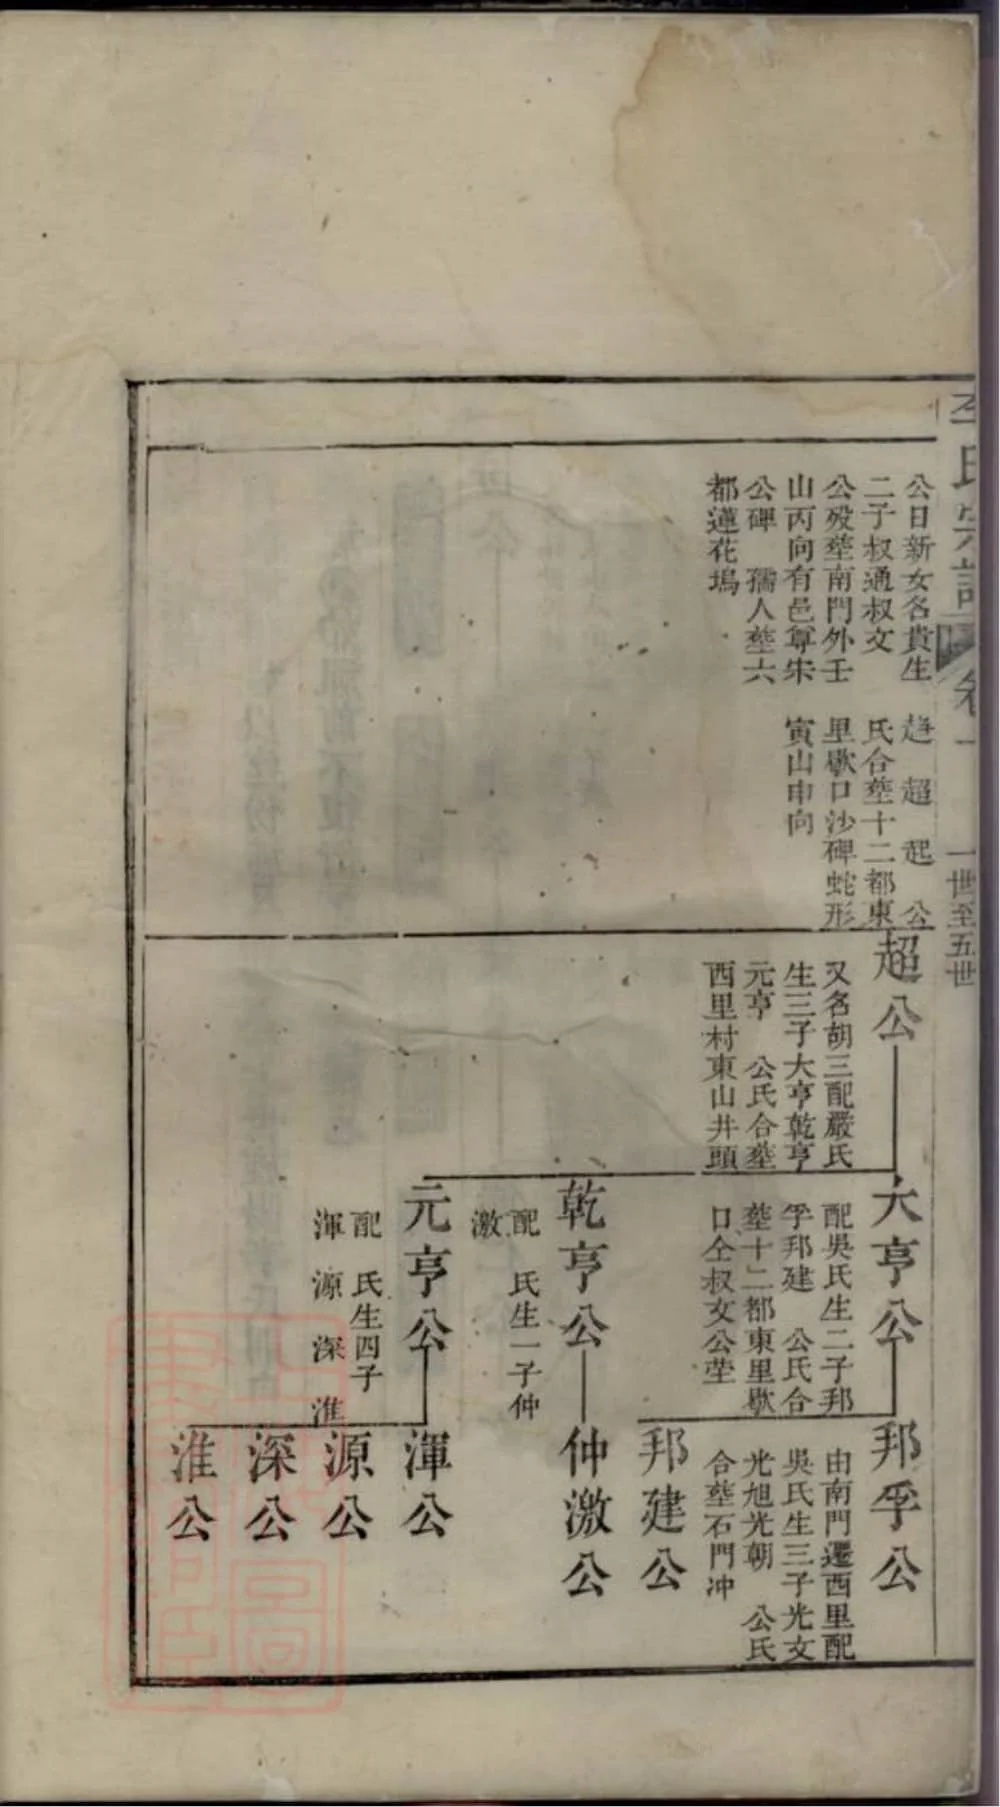 李氏宗譜
卷一
一世至五世
公日新女名貴生
二子叔通叔文
公殁塟南門外壬
山丙向有邑尊朱
公碑　孺人塟六
都蓮花塢
趍　超　起　公
氏合塟十二都東
里歇口沙碑蛇形
寅山申向
超公
又名胡三配嚴氏
生三子大亨乾亨
元亨　公氏合塟
西里村東山井頭
大亨公
配吳氏生二子邦
孚邦建　公氏合
塟十二都東里歇
口仝叔文公塋
乾亨公
配　氏生一子仲
激
元亨公
配　氏生四子
渾　源　深　淮
邦孚公
由南門遷西里配
吳氏生三子光文
光旭光朝　公氏
合塟石門冲
邦建公
仲激公
渾公
源公
深公
淮公